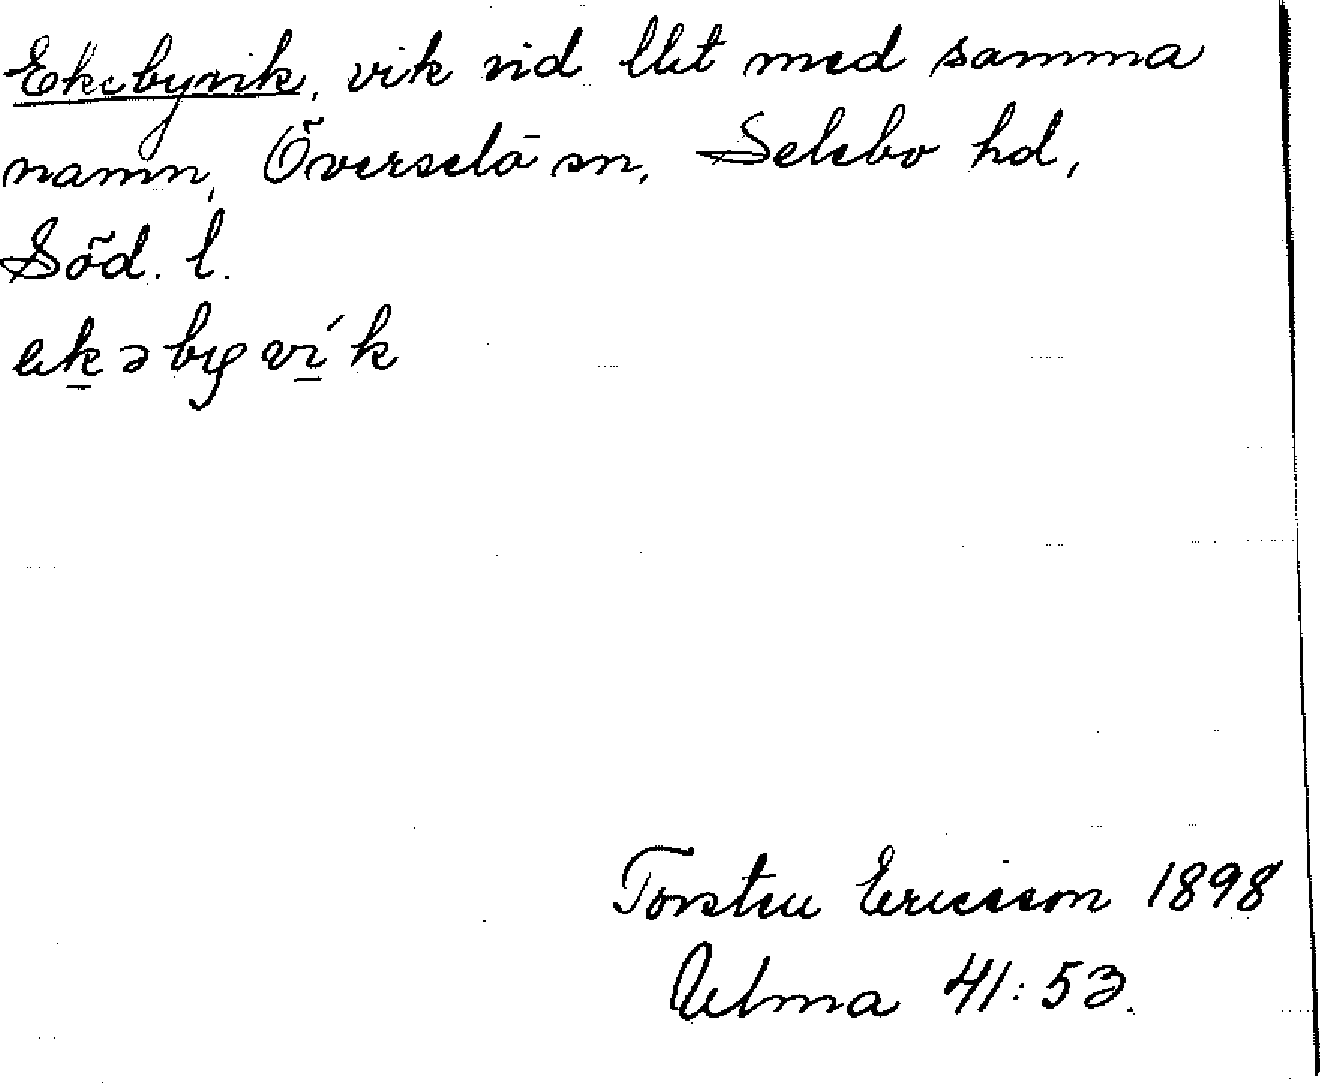 Ekebyvik, vik vid llet med samma
namn, Överselö sn, Selebo hd,
Söd. l.
ekəbyví k
Torsten Ericsson 1898
Ulma 41:53.